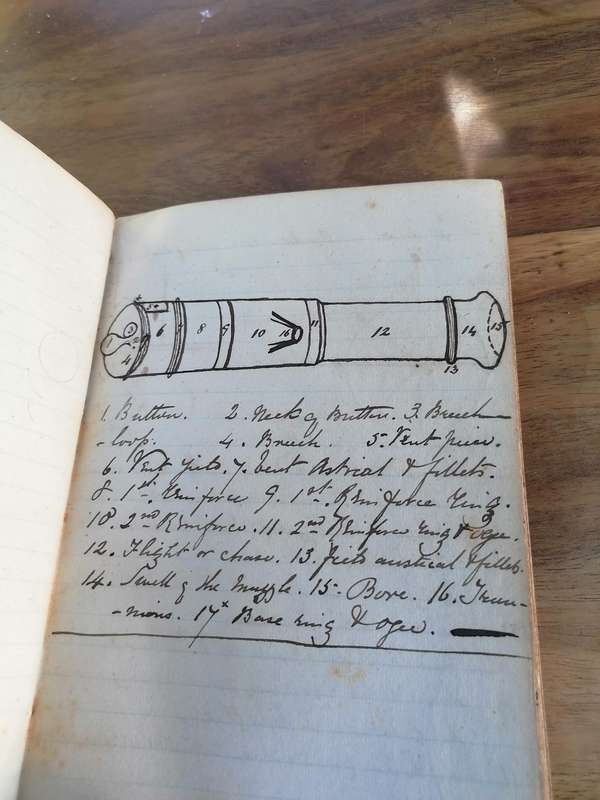 1 2 3 4 5 6 7 8 9 10 16 11 12 13 14 15
1. Button. 2. Neck of Button. 3. Breech
-loop. 4. Breech. 5. Vent piece.
6. Vent field. 7. Vent Astrical & fillets.
8. 1st Reinforce 9. 1st Reinforce ring.
10. 2nd Reinforce. 11. 2nd Reinforce ring & Ogee.
12. Flight or chase. 13. field austical & fillets.
14. Swell of the Muzzle. 15. Bore. 16. Trun-
-nions. 17x Base ring & ogee.